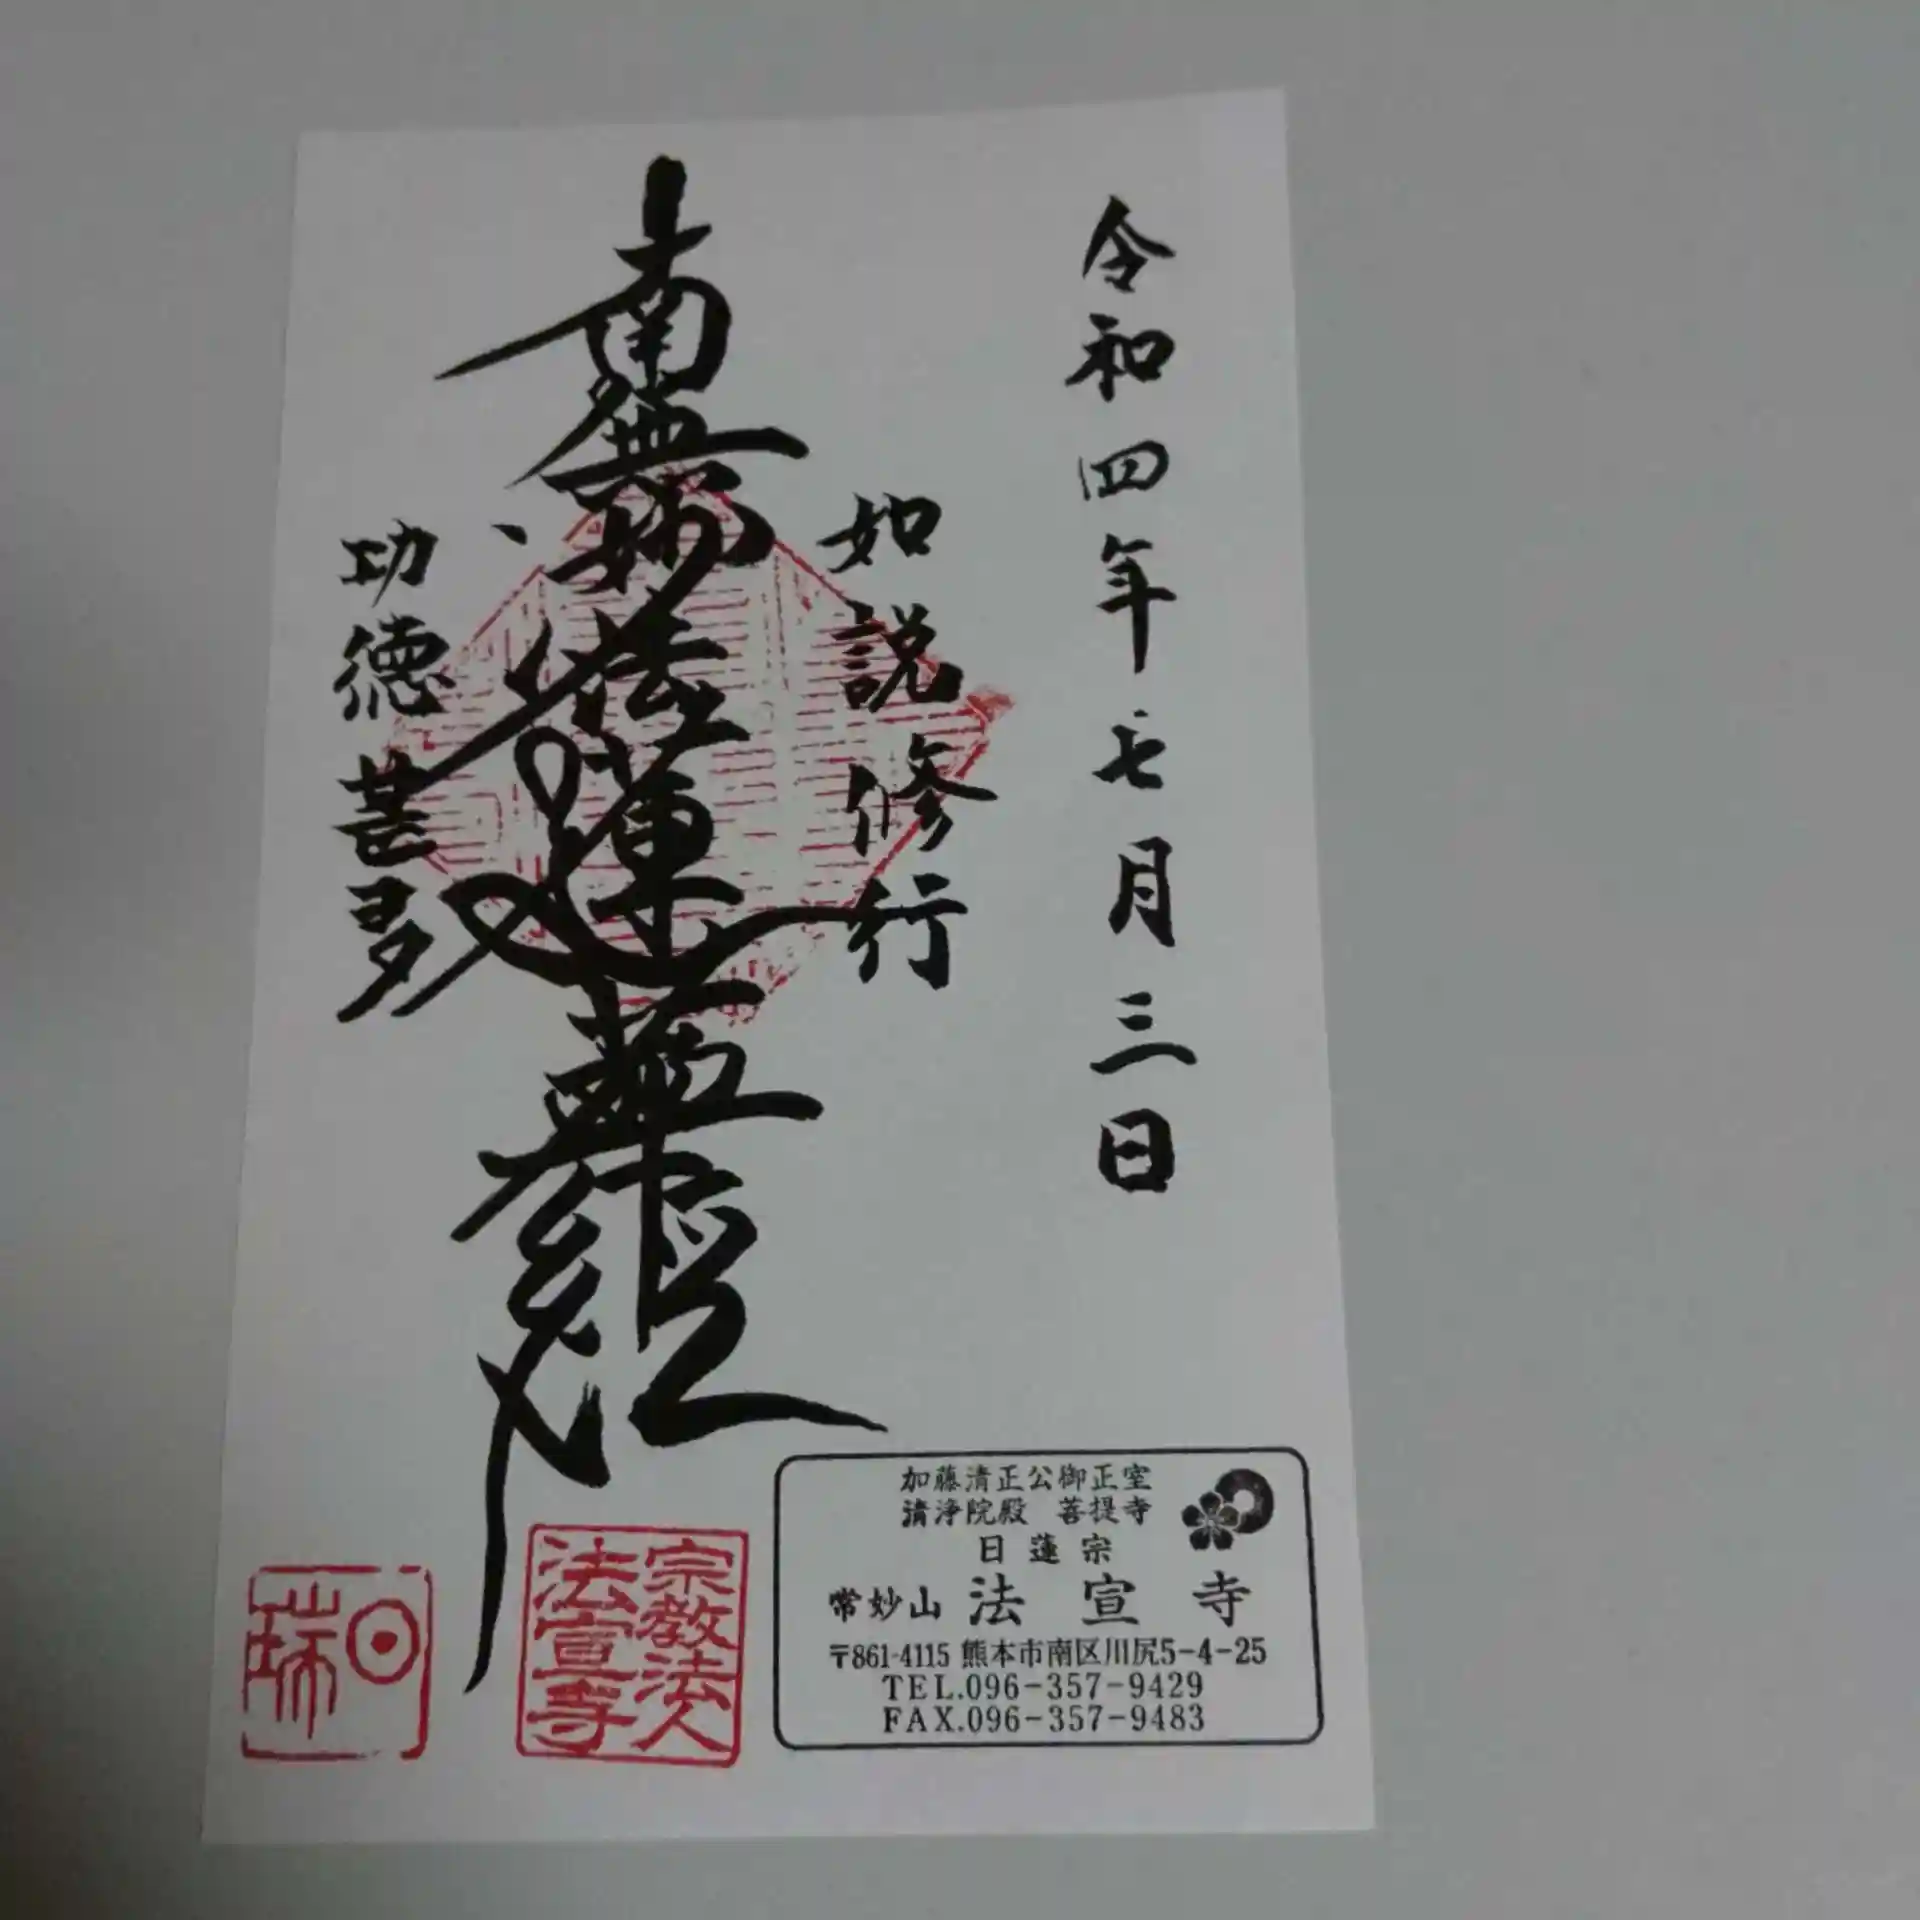 令和四年七月三日
如説修行
南無妙法蓮華経
功徳甚多
加藤清正公御正室
清浄院殿 菩提寺
日蓮宗
常妙山 法宣寺
〒861-4115 熊本市南区川尻5-4-25
TEL.096-357-9429
FAX.096-357-9483
宗教法人
法宣寺
日瑞